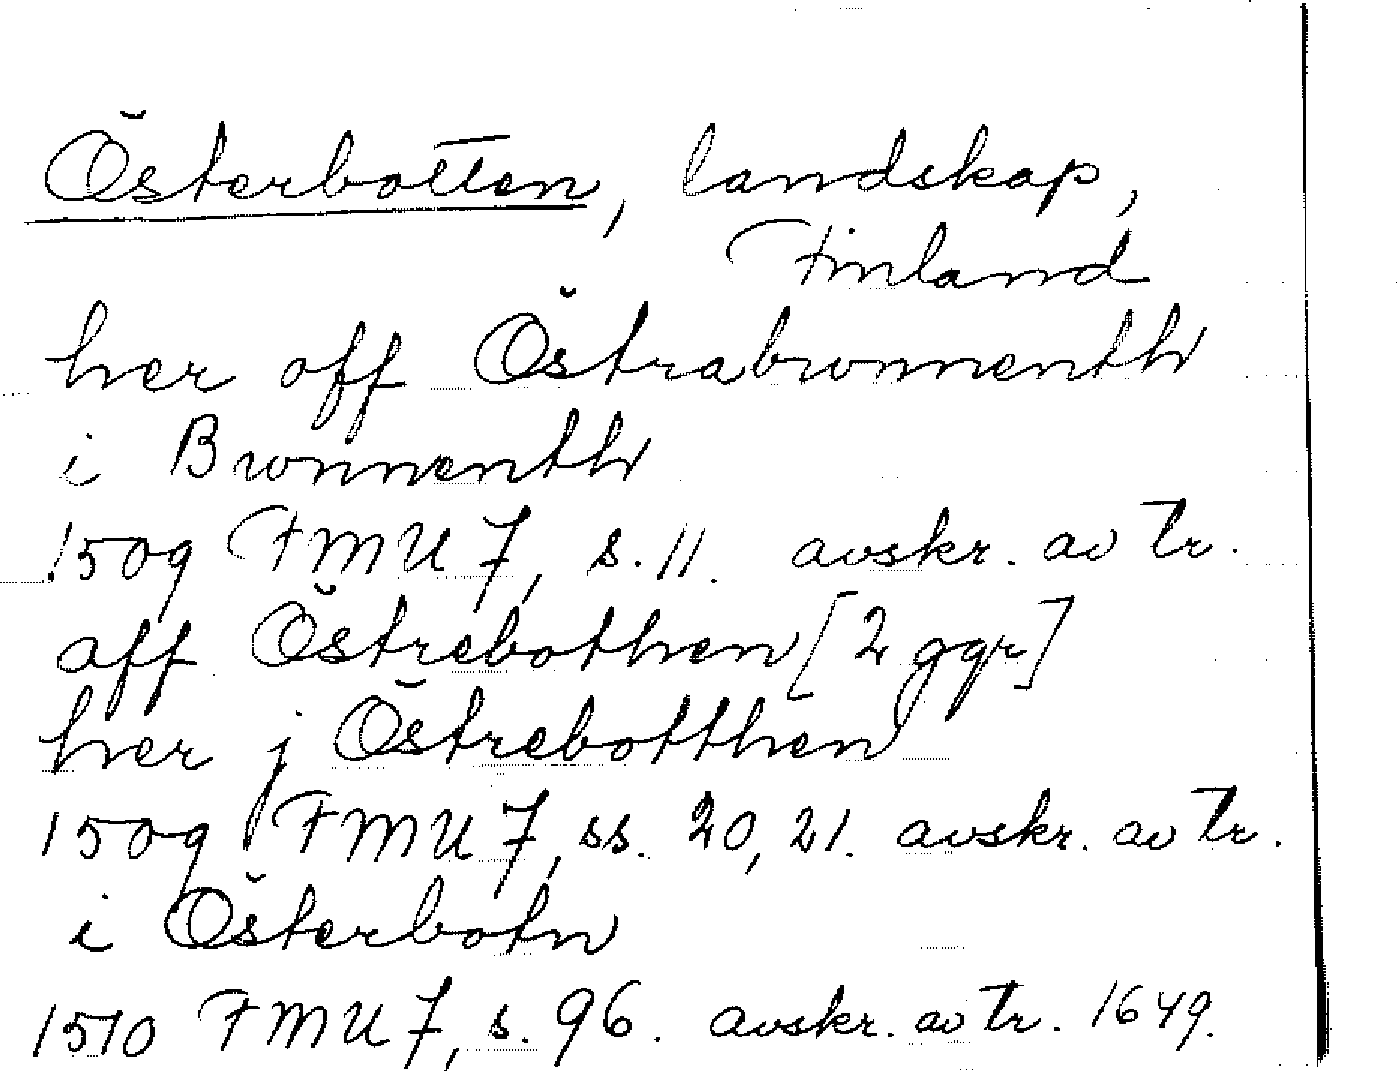 Österbotten, landskap,
Finland
her off Östrabwnnenth
i Bwnnenth
1509 FMU 7, s. 11. avskr. av tr.
aff Östrebothen [2 ggr]
her j Östrebotthen
1509 FMU 7, ss. 20, 21. avskr. av tr.
i Österbotn
1510 FMU 7, s. 96. avskr. av tr. 1649.